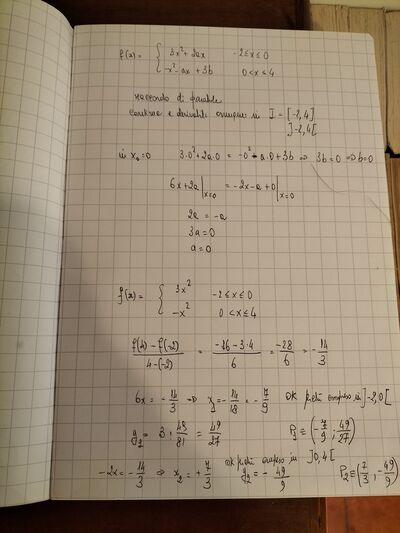 f(x) = { 3x² + 2ax   -2 ≤ x ≤ 0
-x² - ax + 3b   0 < x ≤ 4
raccordo di parabole
continua e derivabile ovunque in I = [-2, 4]
]-2, 4[
in x₀ = 0   3·0² + 2a·0 = -0² - a·0 + 3b ⇒ 3b = 0 ⇒ b = 0
6x + 2a |x=0 = -2x - a + 0 |x=0
2a = -a
3a = 0
a = 0
f(x) = { 3x²   -2 ≤ x ≤ 0
-x²   0 < x ≤ 4
f(4) - f(-2) / 4 - (-2) = -16 - 3·4 / 6 = -28/6 = -14/3
6x = -14/3 ⇒ x₁ = -14/18 = -7/9   OK perché compreso in ]-2, 0[
y₁ = 3 · 49/81 = 49/27   P₁ ≡ (-7/9 ; 49/27)
OK perché compreso in ]0, 4[
-2x = -14/3 ⇒ x₂ = +7/3   y₂ = -49/9   P₂ ≡ (7/3 ; -49/9)